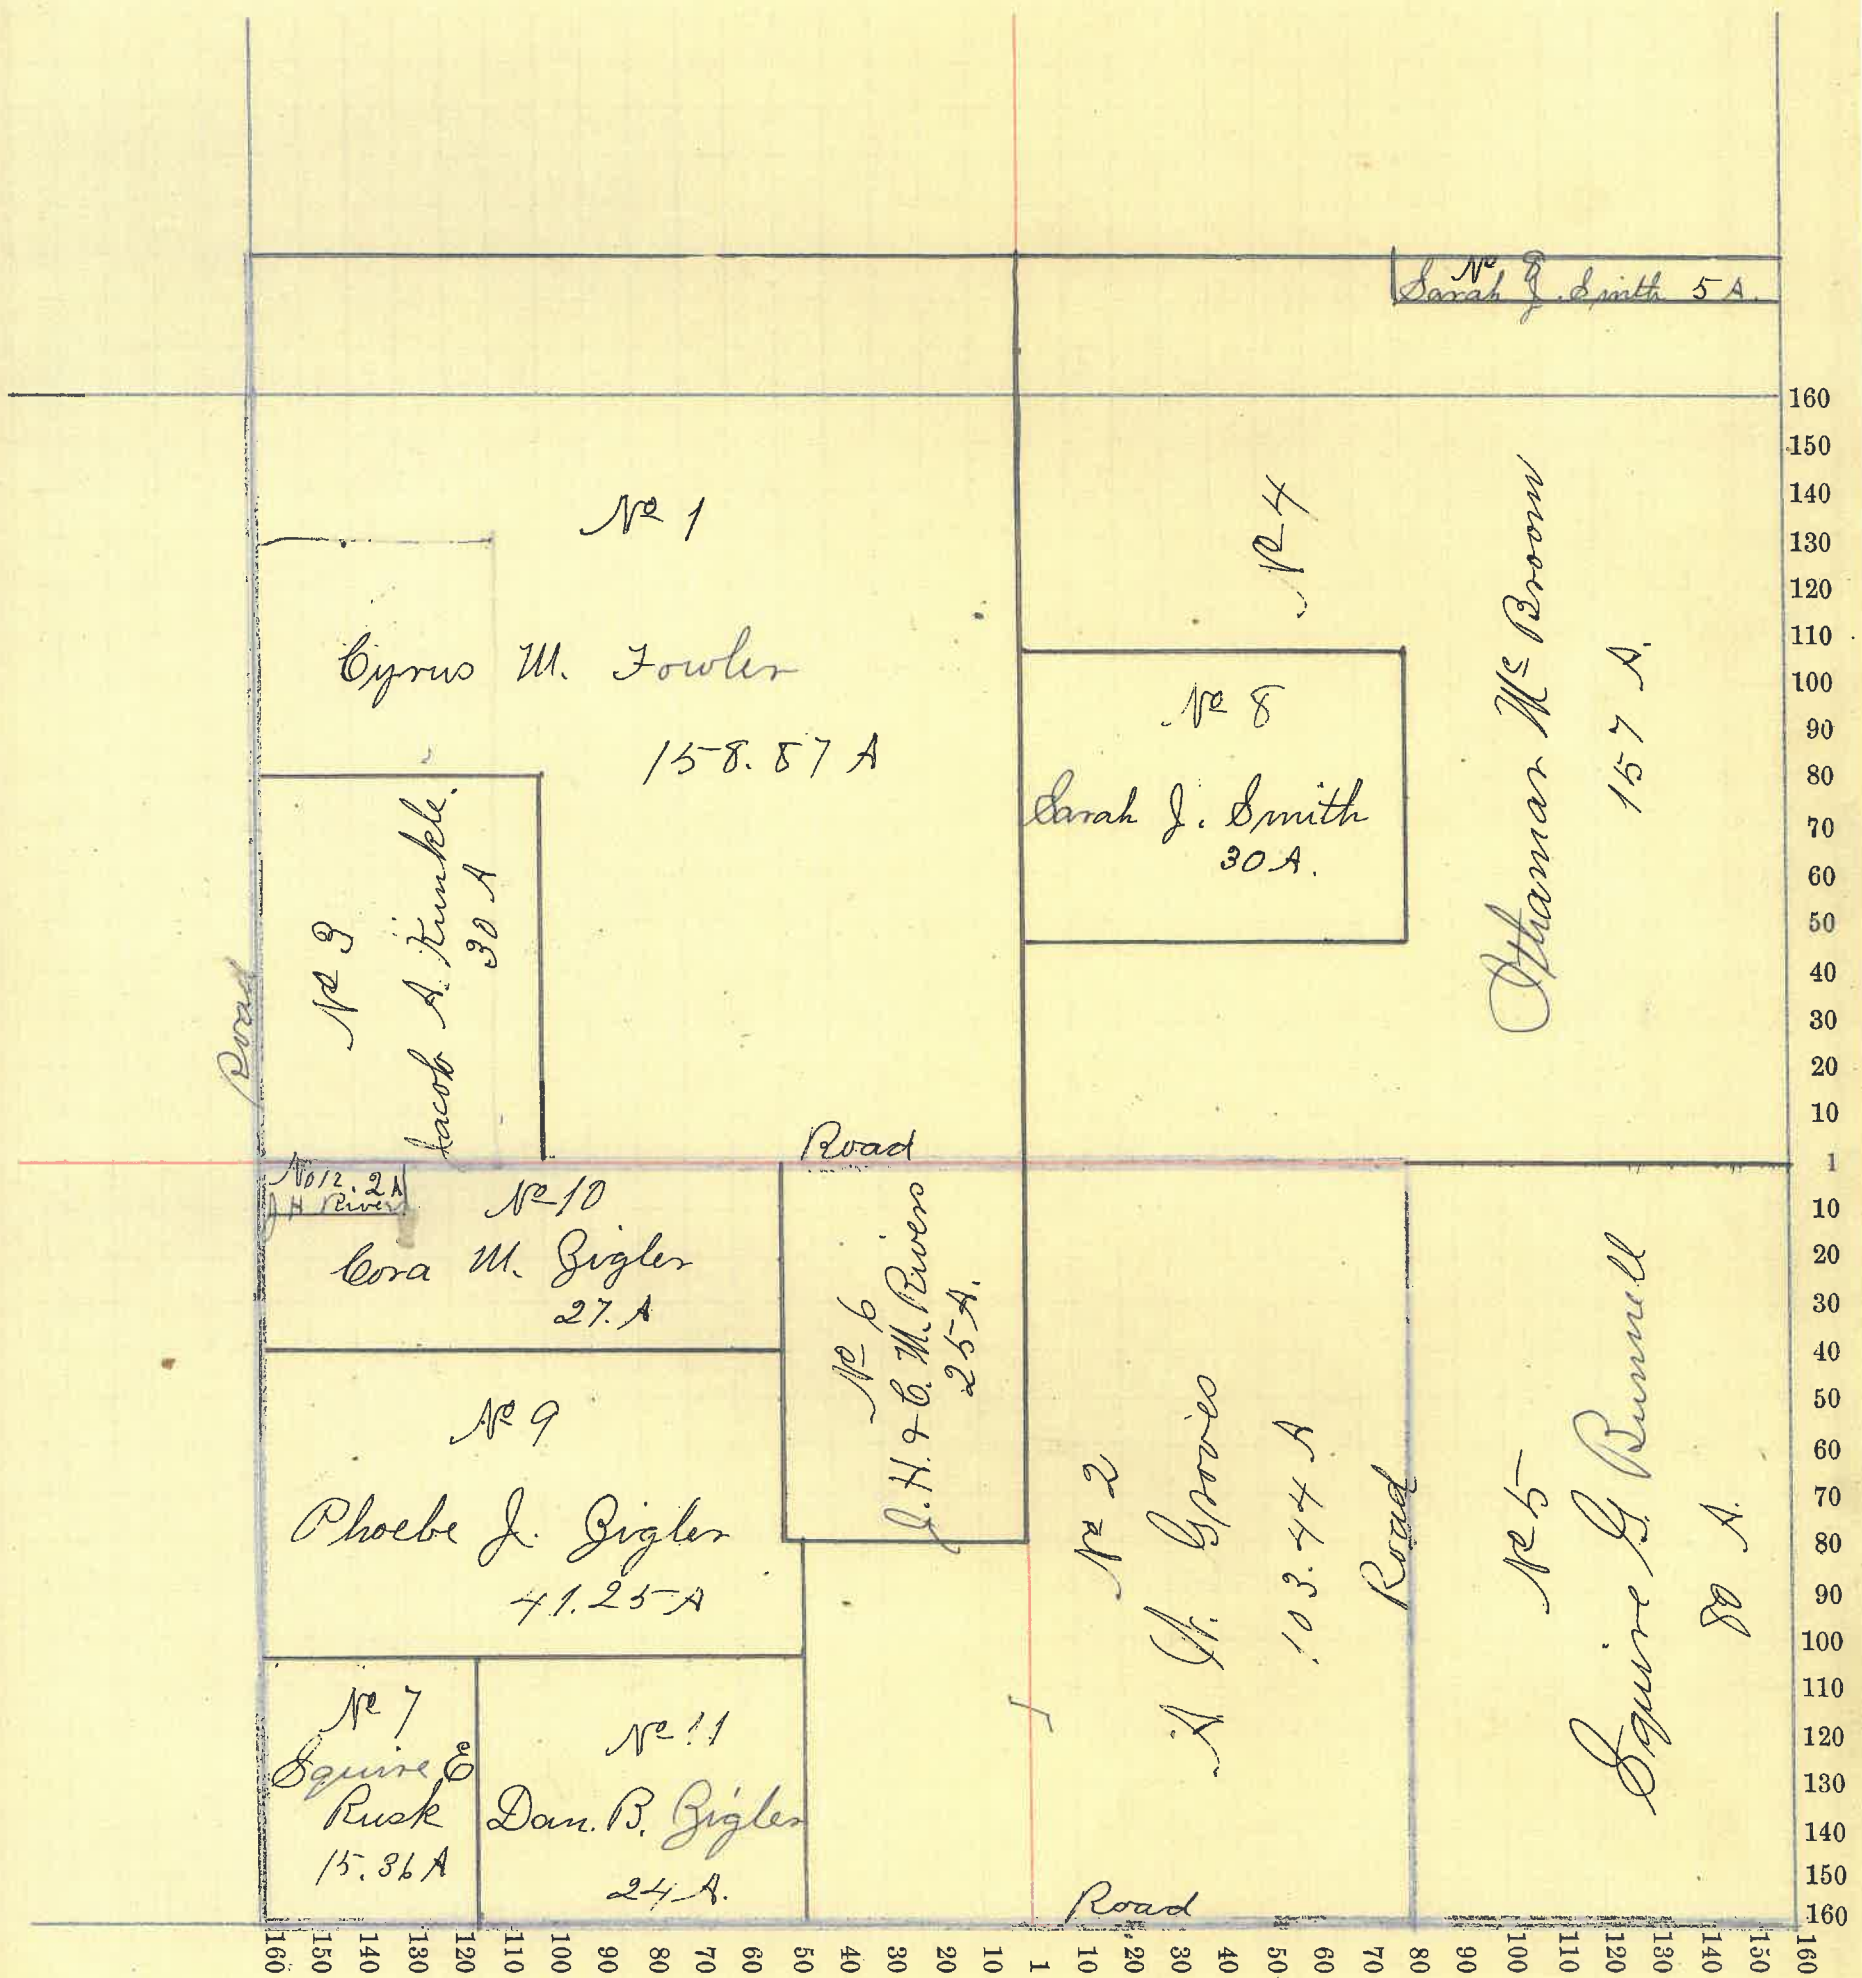 No 8
Sarah J. Smith 5 A.
No 1
Cyrus M. Fowler
158.87 A
No 4
Ithamar Mc Broom
157 A.
No 8
Sarah J. Smith
30 A.
No 3
Jacob A. Kunkle.
30 A
Road
Road
No 12. 2 A
J H River
No 10
Cora M. Zigler
27. A
No 6
J. H. & C. M. Rivers
25 A.
No 9
Phoebe J. Zigler
41.25 A
No 2
A W. Groves
103.44 A
Road
No 5
Squire G. Bunnell
80 A.
No 7
Squire E
Rusk
15.36 A
No 11
Dan. B. Zigler
24 A.
Road
160
150
140
130
120
110
100
90
80
70
60
50
40
30
20
10
1
10
20
30
40
50
60
70
80
90
100
110
120
130
140
150
160
160 150 140 130 120 110 100 90 80 70 60 50 40 30 20 10 1 10 20 30 40 50 60 70 80 90 100 110 120 130 140 150 160